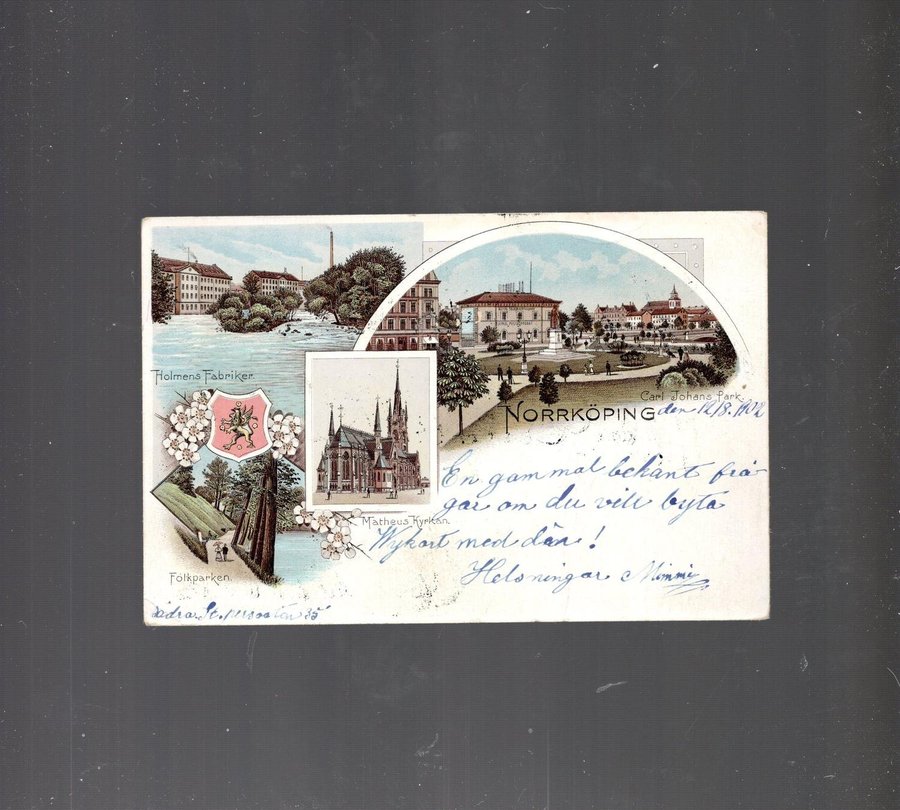 Holmens Fabriker.
Carl Johans Park.
NORRKÖPING
den 12/8. 1902
Matheus Kyrkan.
Folkparken.
En gammal bekant frå-
gar om du vill byta
Wykort med den!
Helsningar Mimmi
St. 35